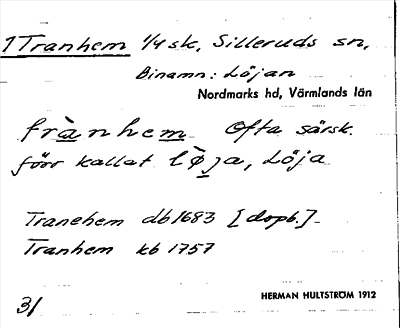 1 Tranhem 1/4 sk, Silleruds sn,
Binamn: Löjan
Nordmarks hd, Värmlands län
trànhem Ofta särsk.
förr kallat lø̀ja, Löja
Tranehem db 1683 [dopb.]
Tranhem kb 1757
HERMAN HULTSTRÖM 1912
3/